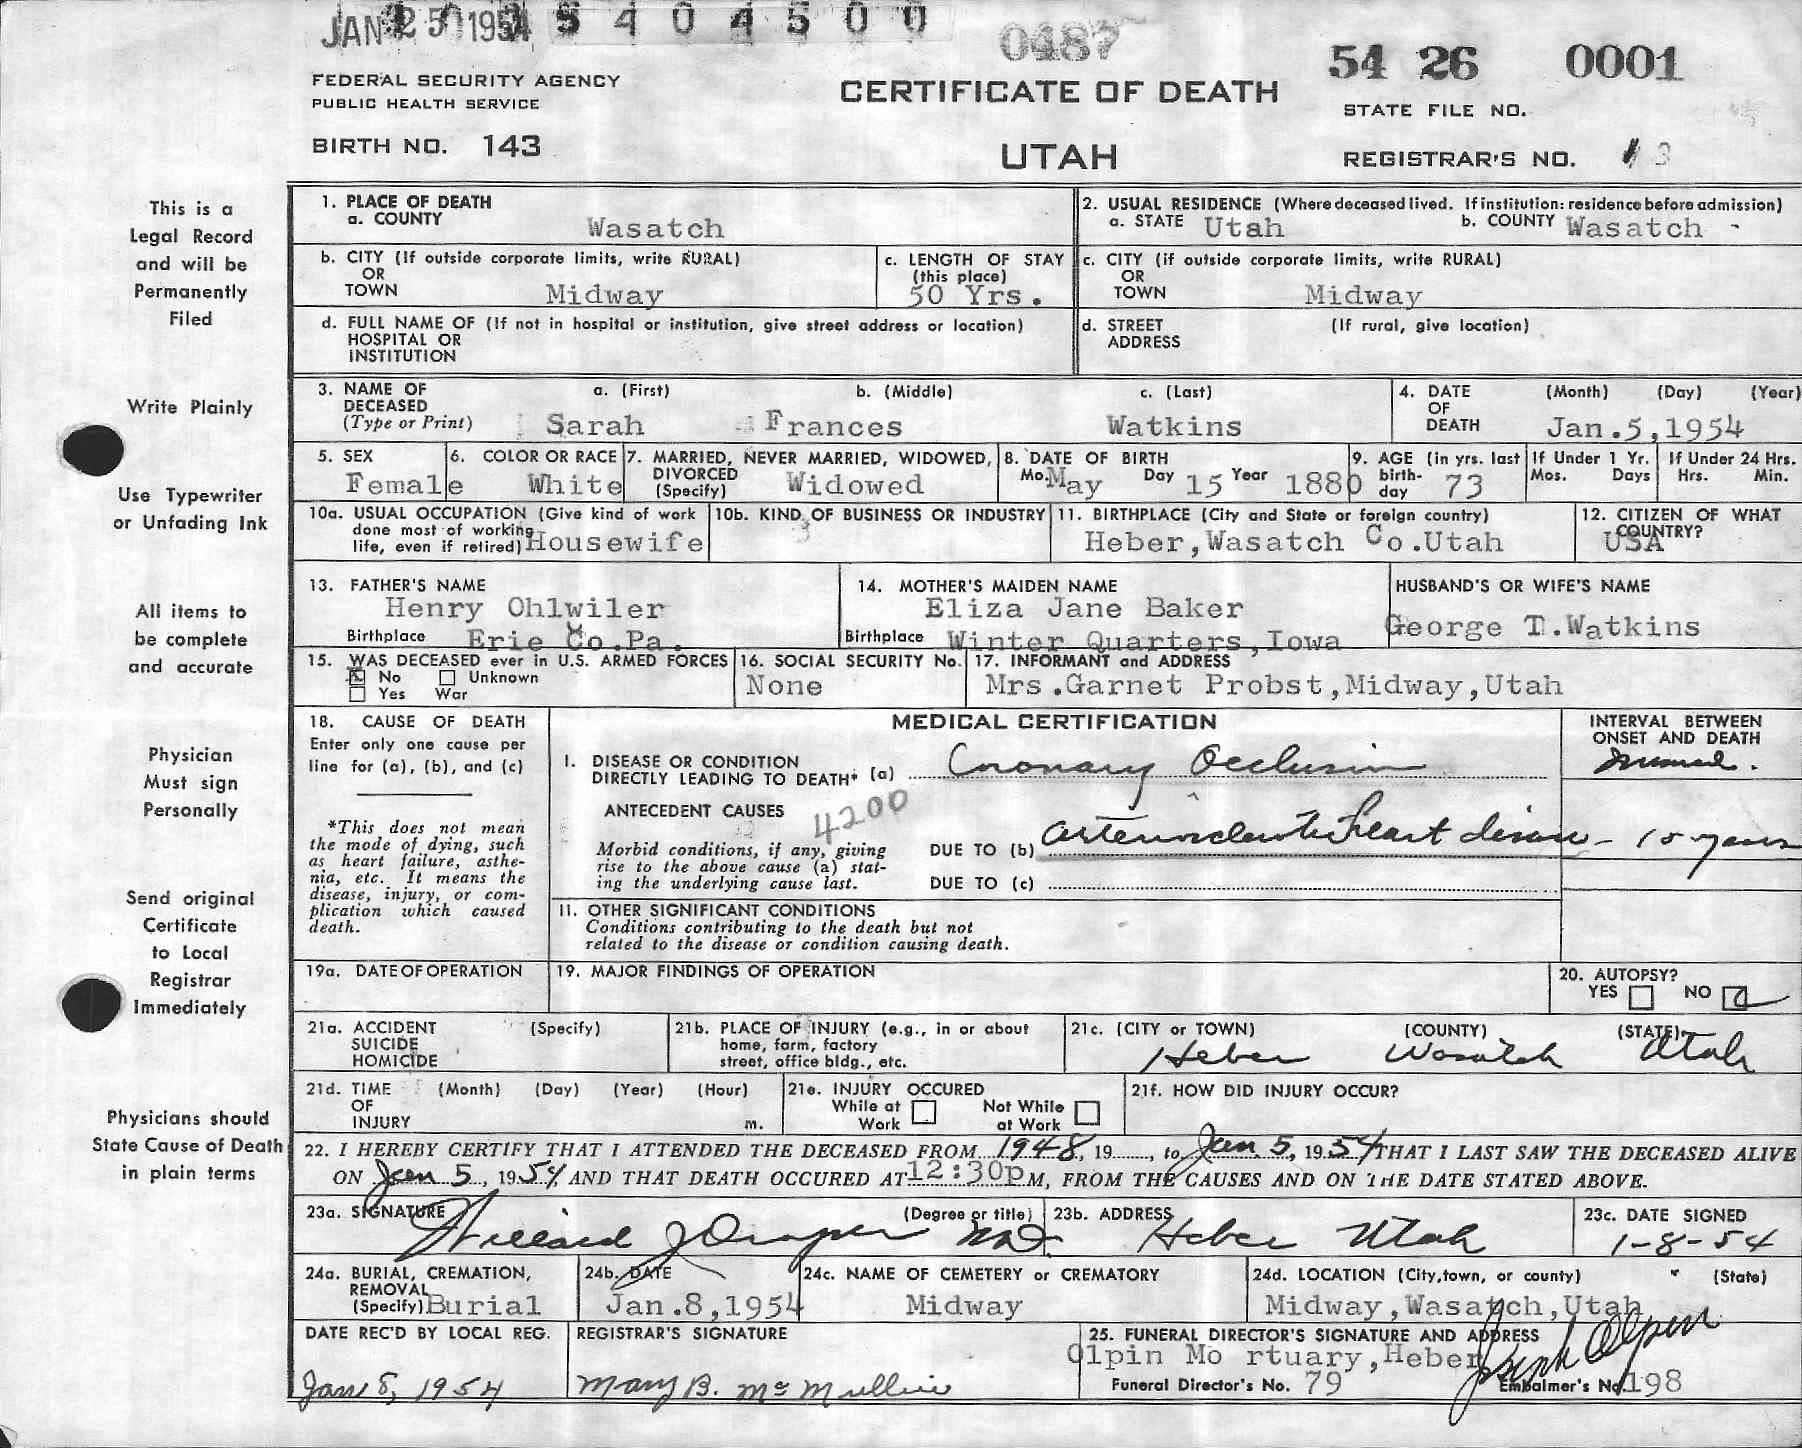 JAN 25 1954
5 4 0 4 5 0 0
0487
54 26 0001
FEDERAL SECURITY AGENCY
PUBLIC HEALTH SERVICE
CERTIFICATE OF DEATH
STATE FILE NO.
BIRTH NO. 143
UTAH
REGISTRAR'S NO. 3
This is a
Legal Record
and will be
Permanently
Filed
Write Plainly
Use Typewriter
or Unfading Ink
All items to
be complete
and accurate
Physician
Must sign
Personally
Send original
Certificate
to Local
Registrar
Immediately
Physicians should
State Cause of Death
in plain terms
1. PLACE OF DEATH
a. COUNTY Wasatch
2. USUAL RESIDENCE (Where deceased lived. If institution: residence before admission)
a. STATE Utah b. COUNTY Wasatch
b. CITY (If outside corporate limits, write RURAL)
OR
TOWN Midway
c. LENGTH OF STAY
(this place)
50 Yrs.
c. CITY (if outside corporate limits, write RURAL)
OR
TOWN Midway
d. FULL NAME OF (If not in hospital or institution, give street address or location)
HOSPITAL OR
INSTITUTION
d. STREET (If rural, give location)
ADDRESS
3. NAME OF a. (First) b. (Middle) c. (Last)
DECEASED
(Type or Print) Sarah Frances Watkins
4. DATE (Month) (Day) (Year)
OF
DEATH Jan.5,1954
5. SEX
Female
6. COLOR OR RACE
White
7. MARRIED, NEVER MARRIED, WIDOWED,
DIVORCED
(Specify) Widowed
8. DATE OF BIRTH
Mo. May Day 15 Year 1880
9. AGE (in yrs. last
birth-
day 73
If Under 1 Yr.
Mos. Days
If Under 24 Hrs.
Hrs. Min.
10a. USUAL OCCUPATION (Give kind of work
done most of working
life, even if retired) Housewife
10b. KIND OF BUSINESS OR INDUSTRY
11. BIRTHPLACE (City and State or foreign country)
Heber,Wasatch Co.Utah
12. CITIZEN OF WHAT
COUNTRY?
USA
13. FATHER'S NAME
Henry Ohlwiler
Birthplace Erie Co.Pa.
14. MOTHER'S MAIDEN NAME
Eliza Jane Baker
Birthplace Winter Quarters,Iowa
HUSBAND'S OR WIFE'S NAME
George T.Watkins
15. WAS DECEASED ever in U.S. ARMED FORCES
x No Unknown
Yes War
16. SOCIAL SECURITY No.
None
17. INFORMANT and ADDRESS
Mrs.Garnet Probst,Midway,Utah
18. CAUSE OF DEATH
Enter only one cause per
line for (a), (b), and (c)
*This does not mean
the mode of dying, such
as heart failure, asthe-
nia, etc. It means the
disease, injury, or com-
plication which caused
death.
MEDICAL CERTIFICATION
INTERVAL BETWEEN
ONSET AND DEATH
I. DISEASE OR CONDITION
DIRECTLY LEADING TO DEATH* (a) Coronary Occlusion
ANTECEDENT CAUSES
4200
Morbid conditions, if any, giving
rise to the above cause (a) stat-
ing the underlying cause last.
DUE TO (b) arteriosclerotic heart disease - 15 years
DUE TO (c)
II. OTHER SIGNIFICANT CONDITIONS
Conditions contributing to the death but not
related to the disease or condition causing death.
19a. DATE OF OPERATION
19. MAJOR FINDINGS OF OPERATION
20. AUTOPSY?
YES NO
21a. ACCIDENT (Specify)
SUICIDE
HOMICIDE
21b. PLACE OF INJURY (e.g., in or about
home, farm, factory
street, office bldg., etc.
21c. (CITY or TOWN) (COUNTY) (STATE)
Heber Wasatch Utah
21d. TIME (Month) (Day) (Year) (Hour)
OF
INJURY m.
21e. INJURY OCCURED
While at Not While
Work at Work
21f. HOW DID INJURY OCCUR?
22. I HEREBY CERTIFY THAT I ATTENDED THE DECEASED FROM 1948, 19......, to Jan 5, 1954 THAT I LAST SAW THE DECEASED ALIVE
ON Jan 5, 1954 AND THAT DEATH OCCURED AT 12:30p M, FROM THE CAUSES AND ON THE DATE STATED ABOVE.
23a. SIGNATURE (Degree or title)
Willard J Draper MD.
23b. ADDRESS
Heber Utah
23c. DATE SIGNED
1-8-54
24a. BURIAL, CREMATION,
REMOVAL
(Specify) Burial
24b. DATE
Jan.8,1954
24c. NAME OF CEMETERY or CREMATORY
Midway
24d. LOCATION (City,town, or county) (State)
Midway,Wasatch,Utah
DATE REC'D BY LOCAL REG.
Jan 8, 1954
REGISTRAR'S SIGNATURE
Mary B. McMullin
25. FUNERAL DIRECTOR'S SIGNATURE AND ADDRESS
Olpin Mo rtuary,Heber
Olpin
Funeral Director's No. 79 Embalmer's No. 198